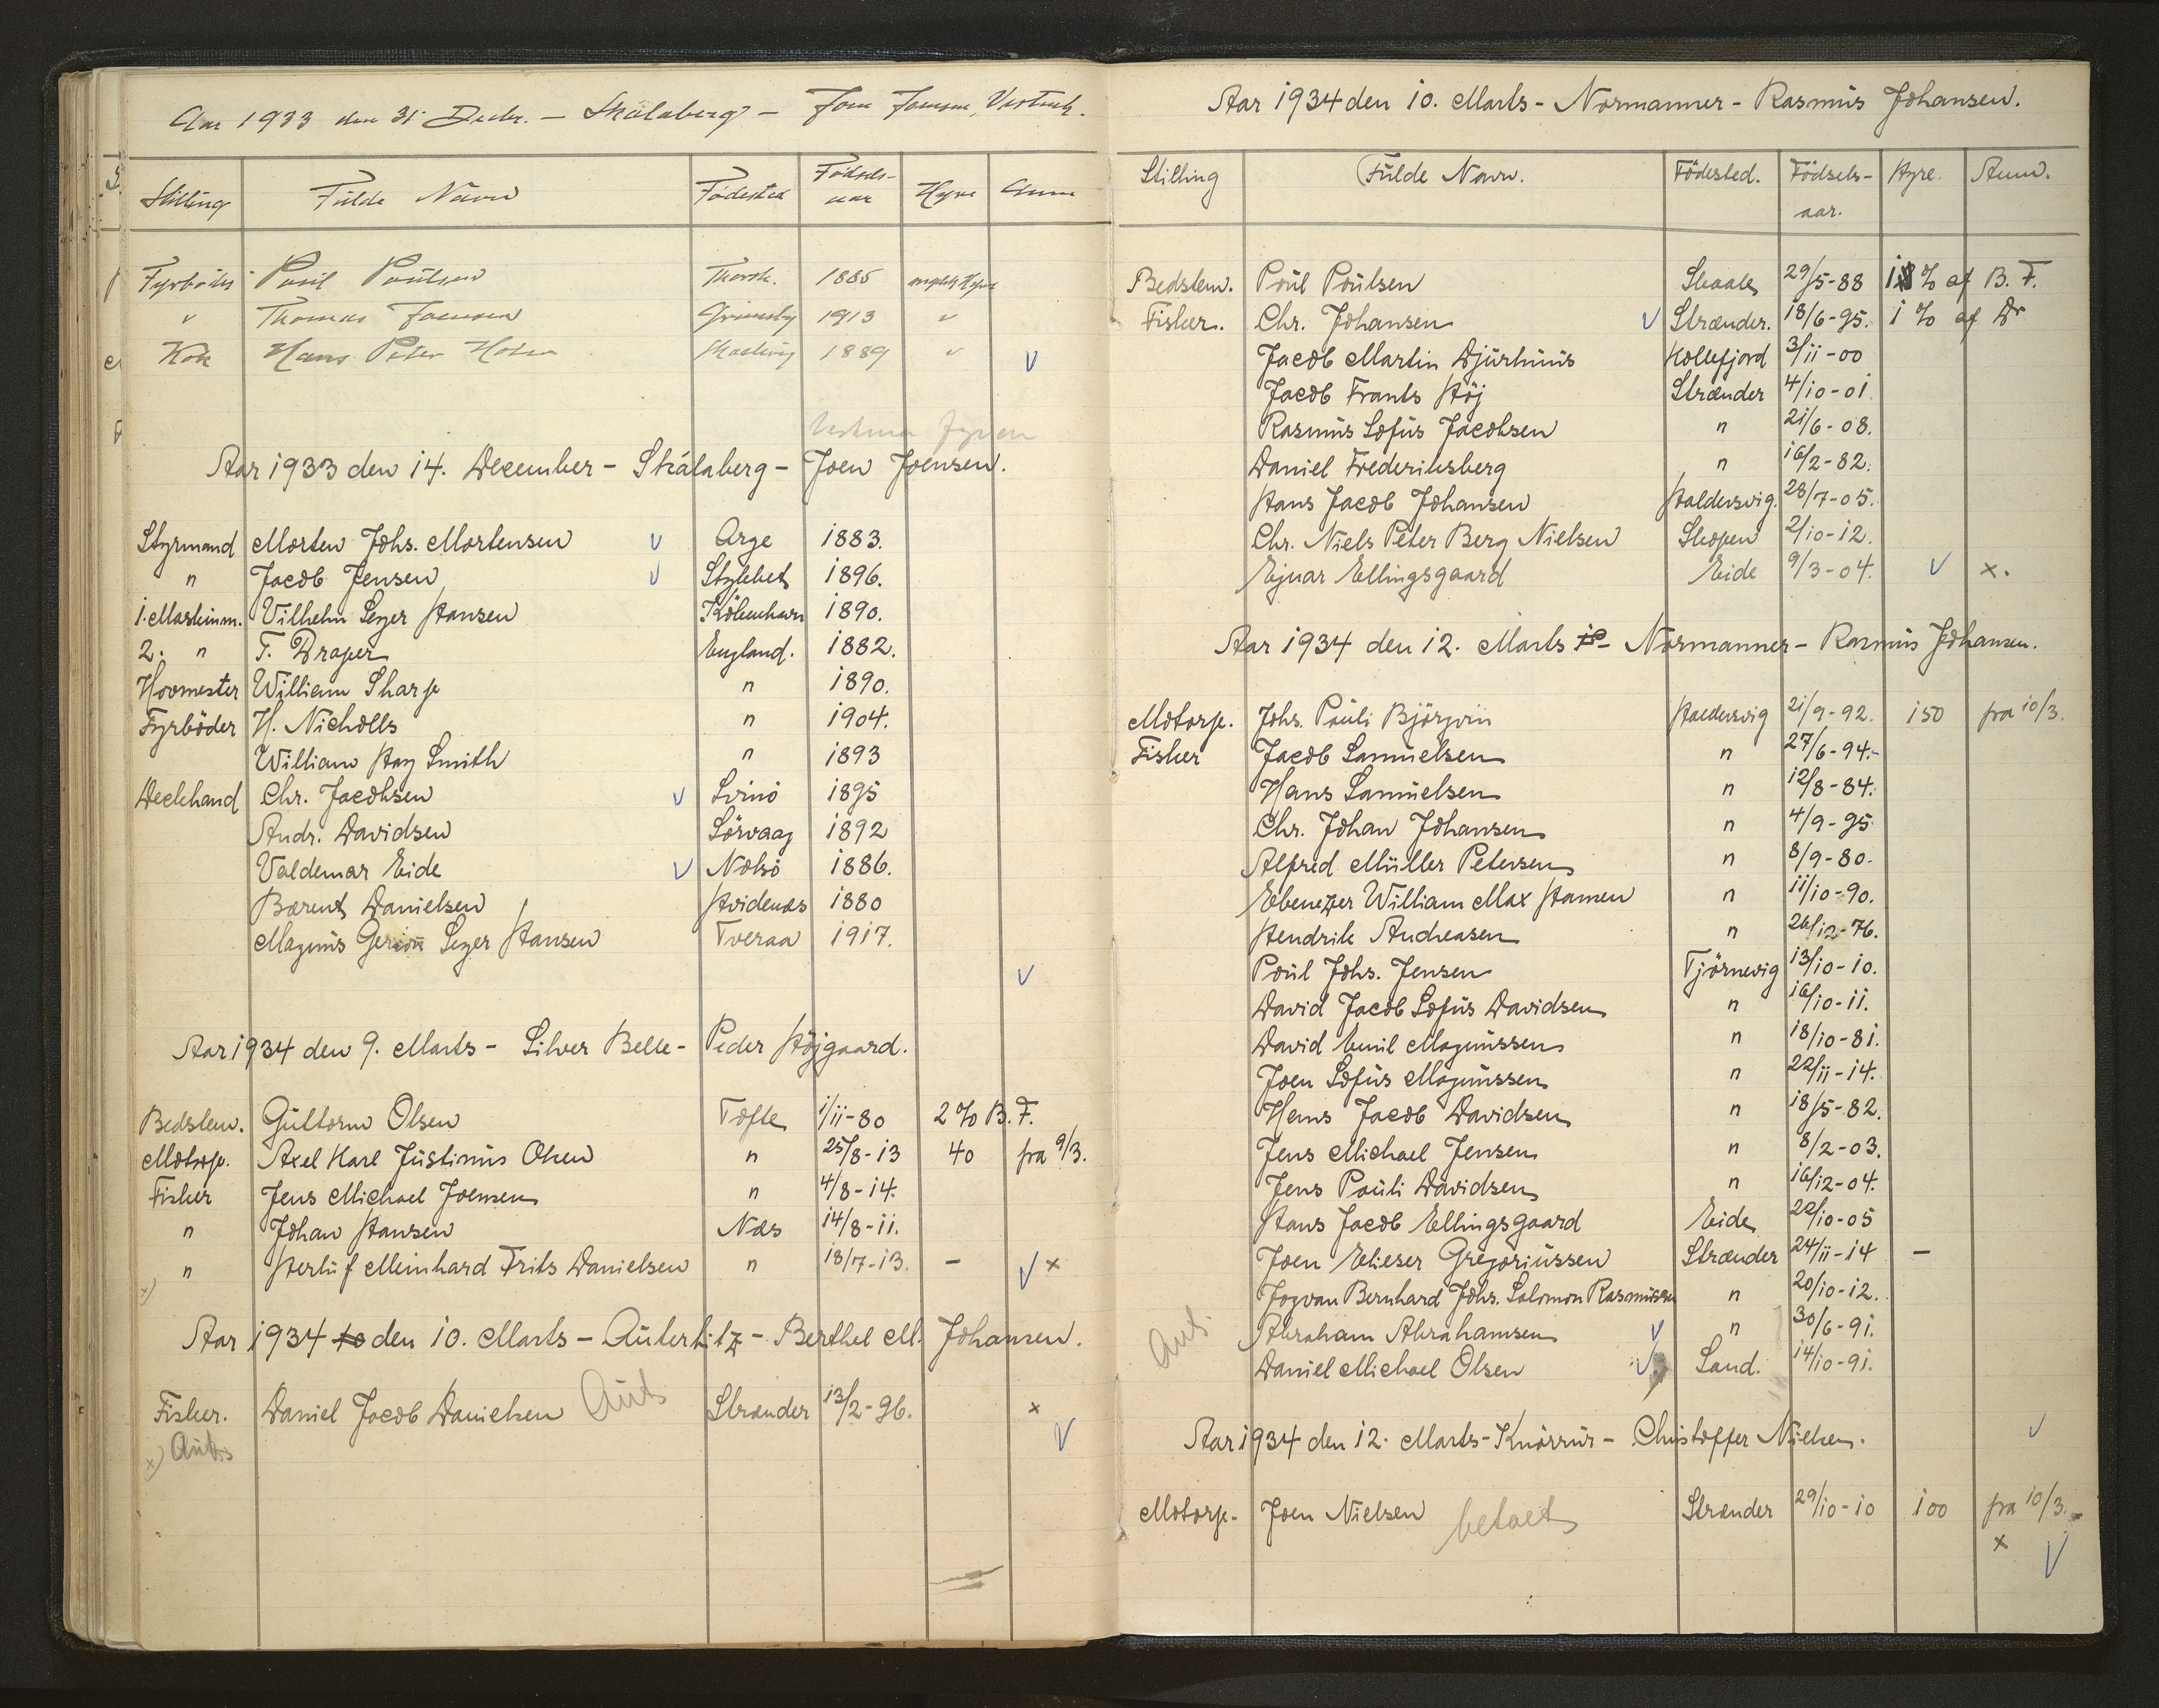 Aar 1933 den 31 Decbr. – Skálaberg – Joen Joensen, Vestmh.
Stilling Fulde Navn Födested Födsels-aar Hyre Anm
Fyrböder Poul Poulsen Thorsh. 1885 engelsk Hyre
v Thomas Joensen Grimsby 1913 v
Kok Hans Peter 1889 v
Aar 1933 den 14. December – Skálaberg – Joen Joensen.
Styrmand Morten Johs. Mortensen Arge 1883.
" Jacob Jensen Stykket 1896.
1. Maskinm. Vilhelm Sezer Hansen Köbenhavn 1890.
2. " T. Draper England. 1882.
Hovmester William Sharp " 1890.
Fyrböder H. Nicholls " 1904.
William Hay Smith " 1893
Deckhand Chr. Jacobsen Svinö 1895
Andr. Davidsen Sörvaag 1892
Valdemar Eide Nolsö 1886.
Barent Danielsen Hvidenæs 1880
Magnus Sezer Hansen Tveraa 1917.
Aar 1934 den 9. Marts – Silver Belle – Peder Höjgaard.
Bedstem. Guttorm Olsen Tofte 1/11-80 2% B.F.
Motorp. Axel Karl Justinus Olsen " 25/8-13 40 fra 9/3.
Fisker Jens Michael Joensen " 4/8-14.
" Johan Hansen Næs 14/8-11.
" Herluf Meinhard Frits Danielsen " 18/7-13. – x
x)
Aar 1934 10 den 10. Marts – Auterlitz – Berthel M. Johansen.
Fisker. Daniel Jacob Danielsen Aut Strænder 13/2-96. x
x) Auts
Aar 1934 den 10. Marts – Normanner – Rasmus Johansen.
Stilling Fulde Navn. Födested. Födsels-aar. Hyre. Anm.
Bedstem. Poul Poulsen Skaale 29/5-88 1% af B.F.
Fisker. Chr. Johansen Strænder. 18/6-95. 1% af Do
Jacob Martin Djurhuus Kollefjord 3/11-00
Jacob Frants Höj Strænder 4/10-01
Rasmus Sofus Jacobsen " 21/6-08.
Daniel Frederiksberg " 16/2-82.
Hans Jacob Johansen Haldersvig. 28/7-05.
Chr. Niels Peter Berg Nielsen Skopen 2/10-12.
Ejnar Ellingsgaard Eide 9/3-04. x.
Aar 1934 den 12. Marts – Normanner – Rasmus Johansen.
Motorp. Johs. Pauli Björgvin Haldersvig 21/9-92. 150 fra 10/3.
Fisker Jacob Samuelsen " 27/6-94.
Hans Samuelsen " 12/8-84.
Chr. Johan Johansen " 4/9-95.
Alfred Müller Petersen " 8/9-80.
Ebenezer William Max Hansen " 11/10-90.
Hendrik Andreasen " 26/12-76.
Poul Johs. Jensen Tjörnevig 13/10-10.
David Jacob Sofus Davidsen " 16/10-11.
David Emil Magnussen " 18/10-81.
Joen Sofus Magnussen " 22/11-14.
Hans Jacob Davidsen " 18/5-82.
Jens Michael Jensen " 8/2-03.
Jens Pauli Davidsen " 16/12-04.
Hans Jacob Ellingsgaard Eide 22/10-05
Joen Elieser Gregoriussen Strænder 24/11-14 –
Jogvan Bernhard Johs. Salomon Rasmussen " 20/10-12.
Aut. Abraham Abrahamsen " 30/6-91.
Daniel Michael Olsen Sand. 14/10-91.
Aar 1934 den 12. Marts – Knörrur – Christoffer Nielsen.
Motorp. Joen Nielsen betalt Strænder 29/10-10 100 fra 10/3.
x